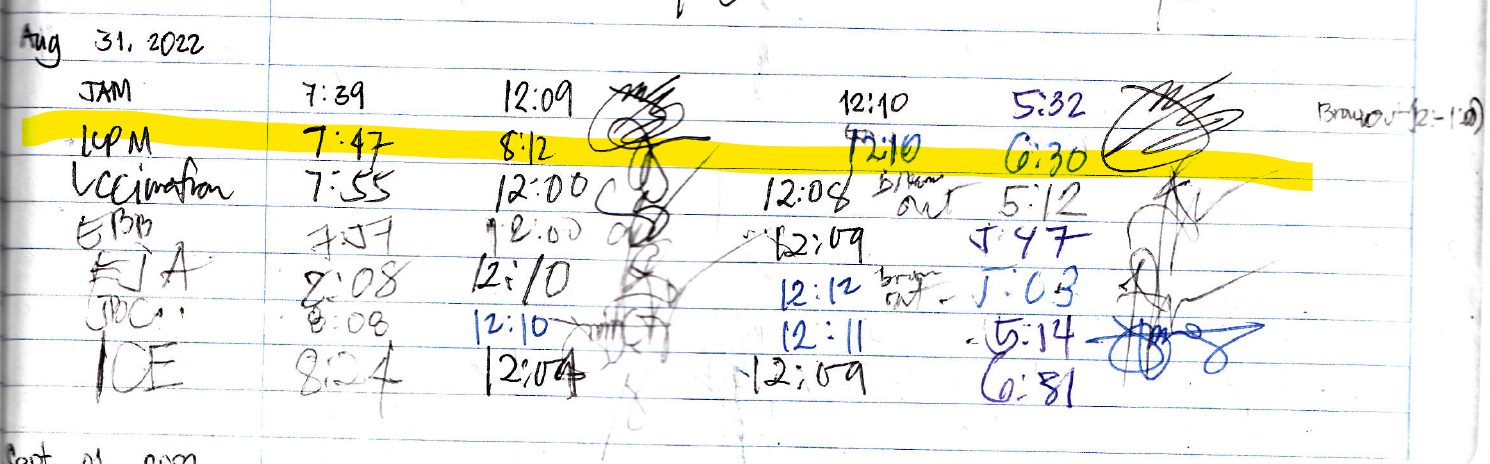 Aug 31, 2022
JAM 7:39 12:09 12:10 5:32
KPM 7:47 8:12 12:10 6:30
7:55 12:00 12:08 out 5:12
EBB 7:57 12:00 12:09 5:47
EJA 8:08 12:10 12:12 out 5:03
JBC 8:08 12:10 12:11 5:14
ICE 8:24 12:09 12:09 6:31
Sept 01